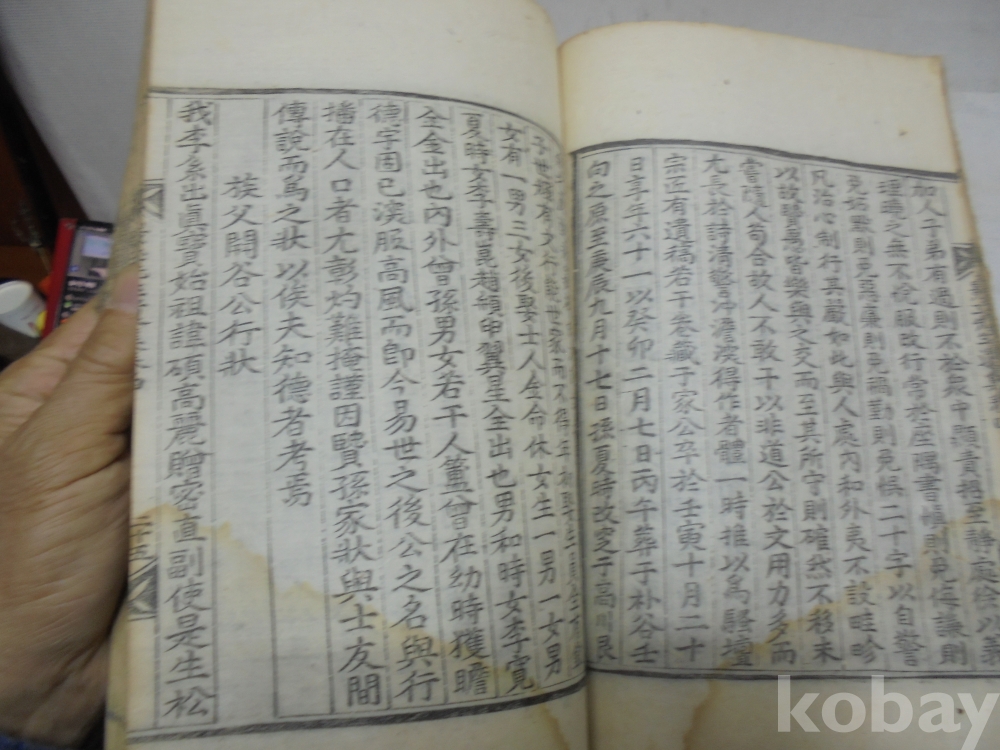 加人子弟有過則不於衆中顯責招至靜處徐以義
理過之無不悅服改行常於座隅書悵則免侮謙則
免坫歐則免惡廉則免禍勤則免悵二十字以自警
凡治心制行其嚴如此與人處內和外夷不設畦畛
以故時爲皆樂與交而至其所守則確然不移未
嘗隨人苟合故人不敢干以非道公於文用力多而
尤長於詩淸警冲澹深得作者體一時推以爲騷壇
宗匠有遺稿若干卷藏于家公卒於壬寅十月二十
日享年六十一以癸卯二月七日丙午葬于朴谷壬
向之原至庚辰九月十七日孫夏時改窆于高川艮
女有一男三女後娶士人全命休女生一男一女男
夏時女李壽崑趙碩申翼星全出也男和時女李寬
全全出也內外曾孫男女若干人簠曾在幼時獲瞻
德宇固已深服高風而卽今易世之後公之名與行
播在人口者尤彰灼難掩謹因賢孫家狀與士友間
傳說而爲之狀以俟夫知德者考焉
族父閒谷公行狀
我李系出眞寶始祖諱碩高麗贈密直副使是生松
kobay